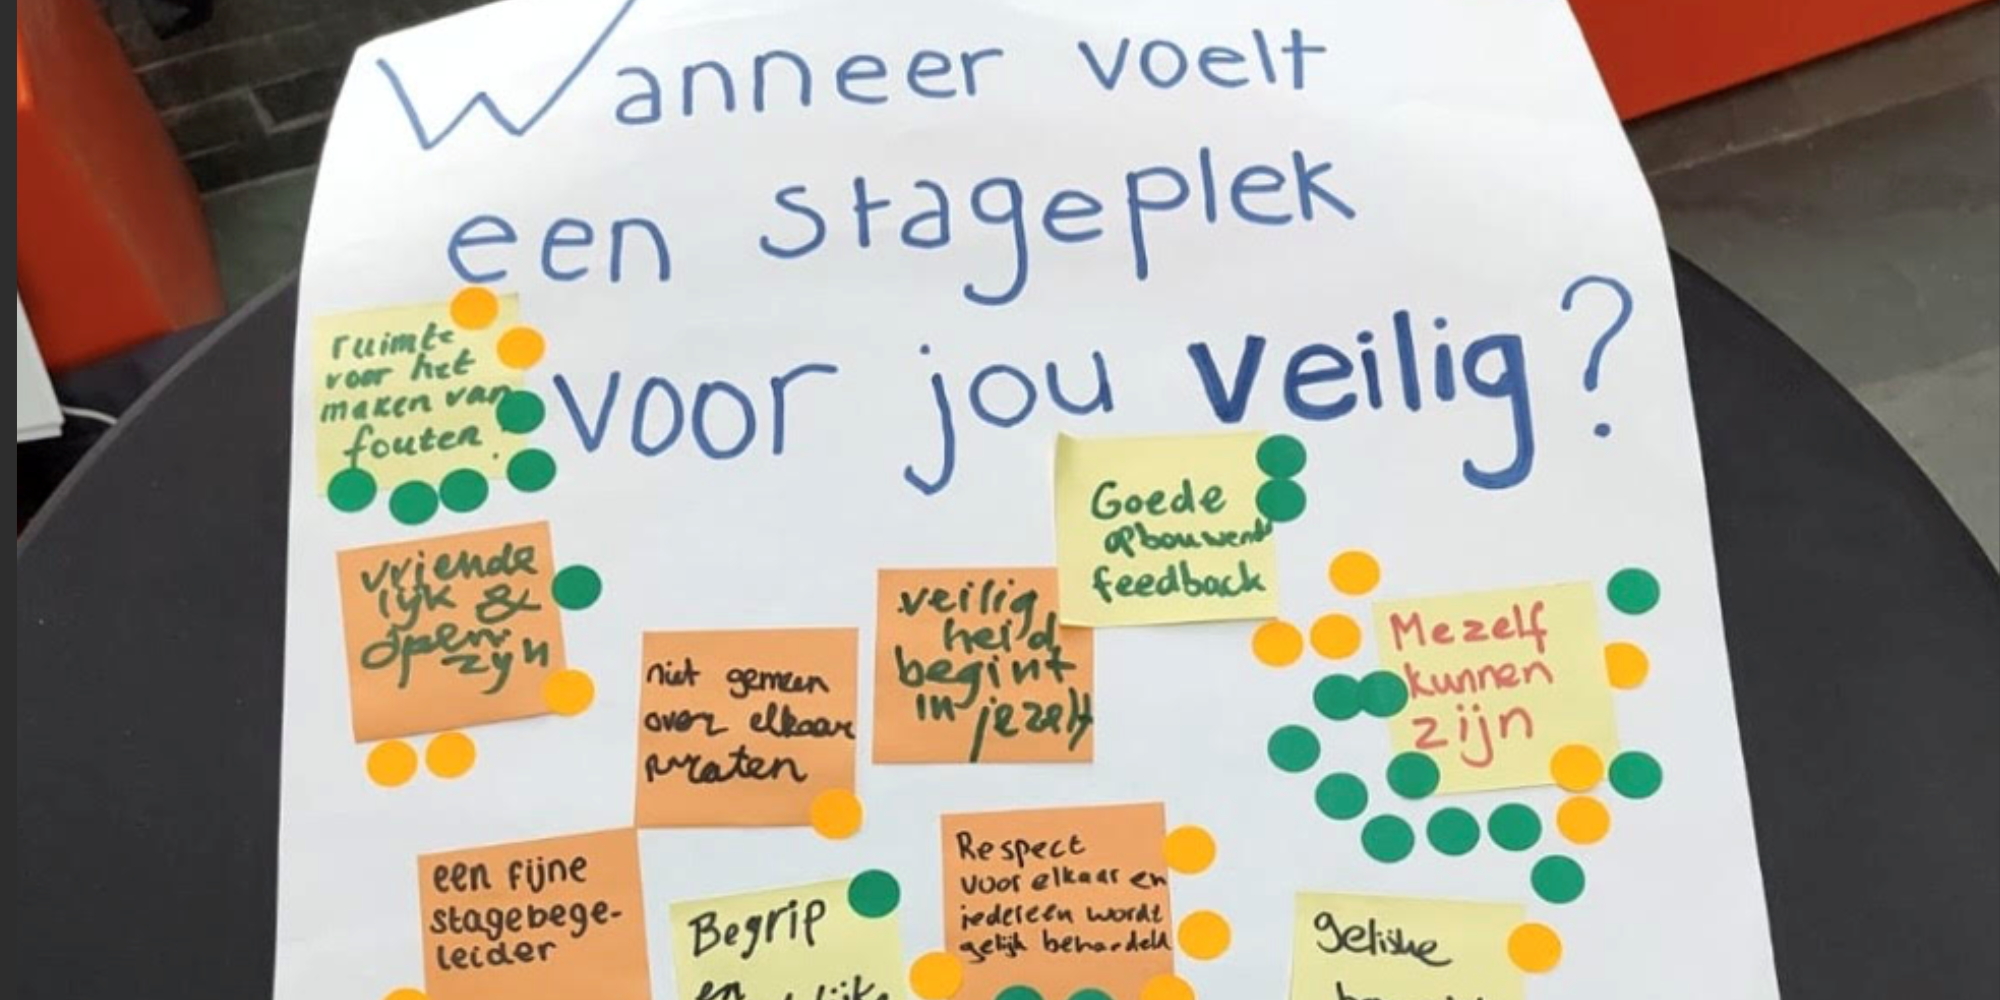 Wanneer voelt
een stageplek
voor jou veilig?
ruimte
voor het
maken van
fouten.
Goede
opbouwend
feedback
vriende
lyk &
open
zyn
niet gemeen
over elkaar
praten
veilig
heid
begint
in jezelf
Mezelf
kunnen
zijn
een fijne
stagebege-
leider
Begrip
en
Respect
voor elkaar en
iedereen wordt
gelijk behandeld
gelijke